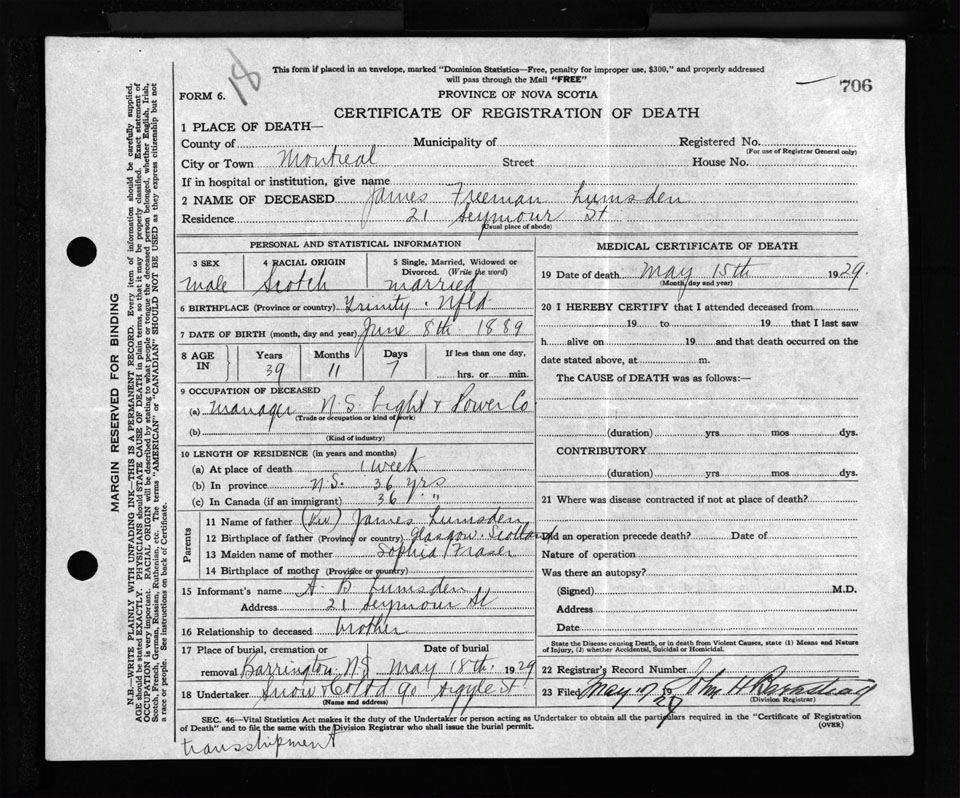 18
This form if placed in an envelope, marked "Dominion Statistics—Free, penalty for improper use, $300," and properly addressed
will pass through the Mail "FREE"
706
FORM 6.
PROVINCE OF NOVA SCOTIA
CERTIFICATE OF REGISTRATION OF DEATH
1 PLACE OF DEATH—
County of Municipality of Registered No.
(For use of Registrar General only)
City or Town Montreal Street House No.
If in hospital or institution, give name
2 NAME OF DECEASED James Freeman Lumsden
Residence 21 Seymour St
(Usual place of abode)
PERSONAL AND STATISTICAL INFORMATION
3 SEX 4 RACIAL ORIGIN 5 Single, Married, Widowed or
Divorced. (Write the word)
male Scotch married
6 BIRTHPLACE (Province or country) Trinity. Nfld
7 DATE OF BIRTH (month, day and year) June 8th 1889
8 AGE IN Years Months Days If less than one day,
39 11 7 hrs. or min.
9 OCCUPATION OF DECEASED
(a) manager N.S. Light & Power Co
(Trade or occupation or kind of work)
(b)
(Kind of industry)
10 LENGTH OF RESIDENCE (in years and months)
(a) At place of death 1 week
(b) In province N.S. 36 yrs
(c) In Canada (if an immigrant) 36 " "
Parents
11 Name of father (Rev.) James Lumsden
12 Birthplace of father (Province or country) Glasgow. Scotland
13 Maiden name of mother Sophia Fraser
14 Birthplace of mother (Province or country)
15 Informant's name A. B Lumsden
Address 21 Seymour St
16 Relationship to deceased brother
17 Place of burial, cremation or Date of burial
removal Barrington, N.S. May 18th. 1929
18 Undertaker Snow & Co Ltd 90 Argyle St
(Name and address)
MEDICAL CERTIFICATE OF DEATH
19 Date of death May 15th 1929.
(Month, day and year)
20 I HEREBY CERTIFY that I attended deceased from
19 to 19 that I last saw
h alive on 19 and that death occurred on the
date stated above, at m.
The CAUSE of DEATH was as follows:—
(duration) yrs mos dys.
CONTRIBUTORY
(duration) yrs mos dys.
21 Where was disease contracted if not at place of death?
Did an operation precede death? Date of
Nature of operation
Was there an autopsy?
(Signed) M.D.
Address
Date
State the Disease causing Death, or in death from Violent Causes, state (1) Means and Nature
of Injury, (2) whether Accidental, Suicidal or Homicidal.
22 Registrar's Record Number
23 Filed May 17 1929 John H
(Division Registrar)
SEC. 46—Vital Statistics Act makes it the duty of the Undertaker or person acting as Undertaker to obtain all the particulars required in the "Certificate of Registration
of Death" and to file the same with the Division Registrar who shall issue the burial permit. (OVER)
transshipment
MARGIN RESERVED FOR BINDING
N.B.—WRITE PLAINLY WITH UNFADING INK—THIS IS A PERMANENT RECORD. Every item of information should be carefully supplied.
AGE should be stated EXACTLY. PHYSICIANS should STATE CAUSE OF DEATH in plain terms, so that it may be properly classified. Exact statement of
OCCUPATION is very important. RACIAL ORIGIN will be described by stating to what people or tongue the deceased person belonged, whether English, Irish,
Scotch, French, German, Russian, Ruthenian, etc. The terms "AMERICAN" or "CANADIAN" SHOULD NOT BE USED as they express citizenship but not
a race or people. See instructions on back of Certificate.